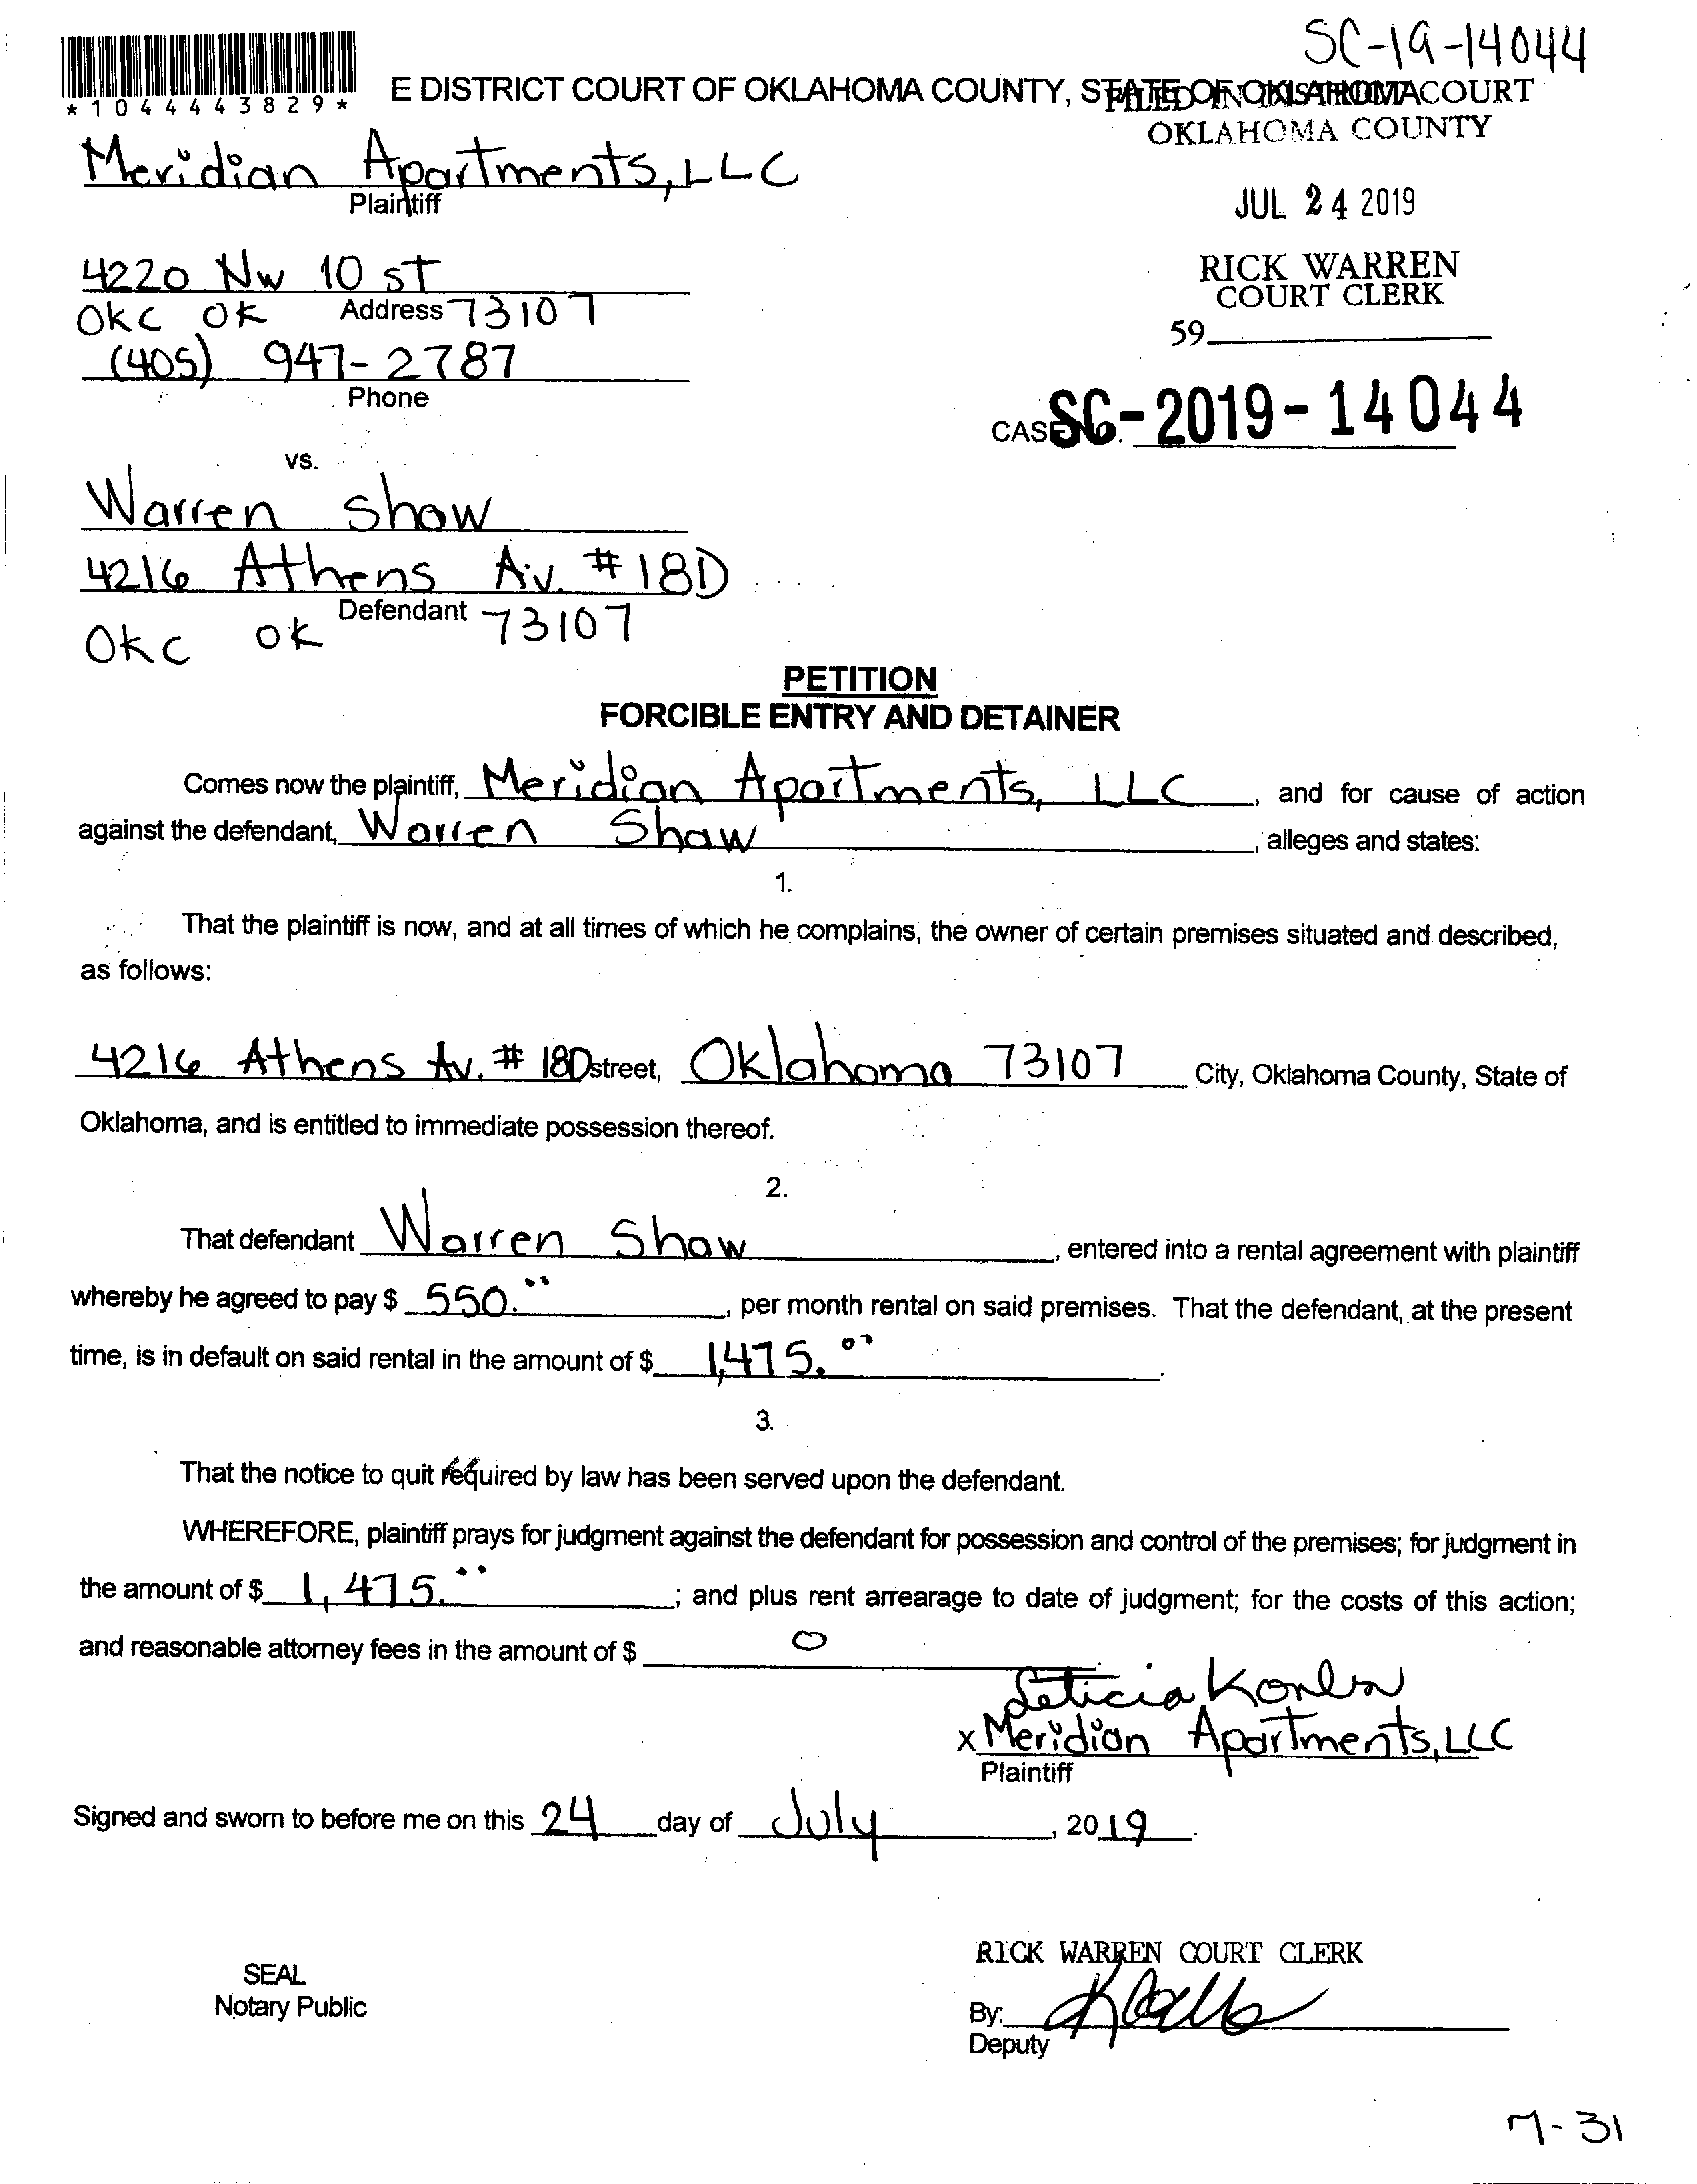 SC-19-14044
*1044443829*
E DISTRICT COURT OF OKLAHOMA COUNTY, STATE OF OKLAHOMA
FILED IN DISTRICT COURT
OKLAHOMA COUNTY
Meridian Apartments, LLC
Plaintiff
JUL 24 2019
4220 NW 10 ST
RICK WARREN
COURT CLERK
OKC OK Address 73107
59
(405) 947-2787
Phone
CASE NO. SC-2019-14044
vs.
Warren Shaw
4216 Athens Av. #18D
Defendant
OKC OK 73107
PETITION
FORCIBLE ENTRY AND DETAINER
Comes now the plaintiff, Meridian Apartments, LLC, and for cause of action
against the defendant, Warren Shaw, alleges and states:
1.
That the plaintiff is now, and at all times of which he complains, the owner of certain premises situated and described,
as follows:
4216 Athens Av. # 18D street, Oklahoma 73107 City, Oklahoma County, State of
Oklahoma, and is entitled to immediate possession thereof.
2.
That defendant Warren Shaw, entered into a rental agreement with plaintiff
whereby he agreed to pay $ 550.00, per month rental on said premises. That the defendant, at the present
time, is in default on said rental in the amount of $ 1,475.00.
3.
That the notice to quit required by law has been served upon the defendant.
WHEREFORE, plaintiff prays for judgment against the defendant for possession and control of the premises; for judgment in
the amount of $ 1,475.00; and plus rent arrearage to date of judgment; for the costs of this action;
and reasonable attorney fees in the amount of $ 0
Leticia
x Meridian Apartments, LLC
Plaintiff
Signed and sworn to before me on this 24 day of July, 2019.
RICK WARREN COURT CLERK
SEAL
Notary Public
By:
Deputy
7-31